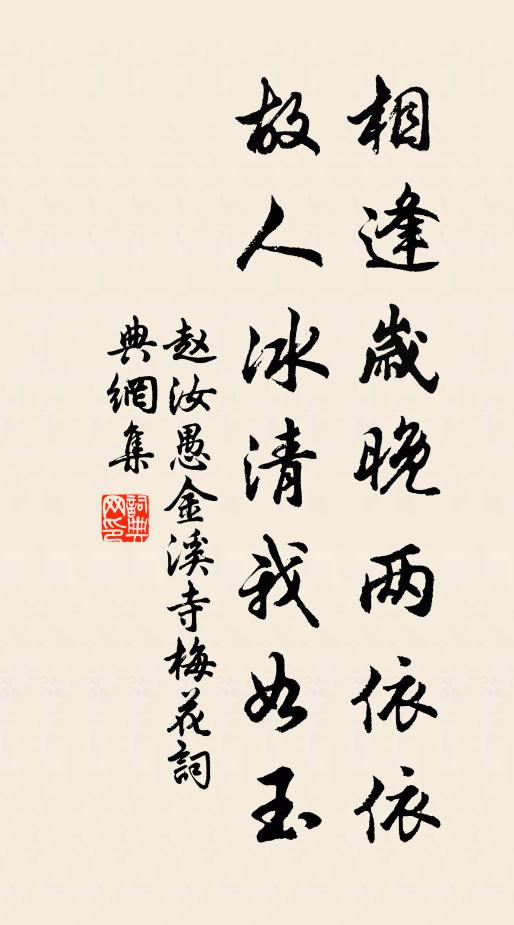 相逢岁晚两依依
故人冰清我如玉
赵汝愚金溪寺梅花詞
典網集
詞典網印